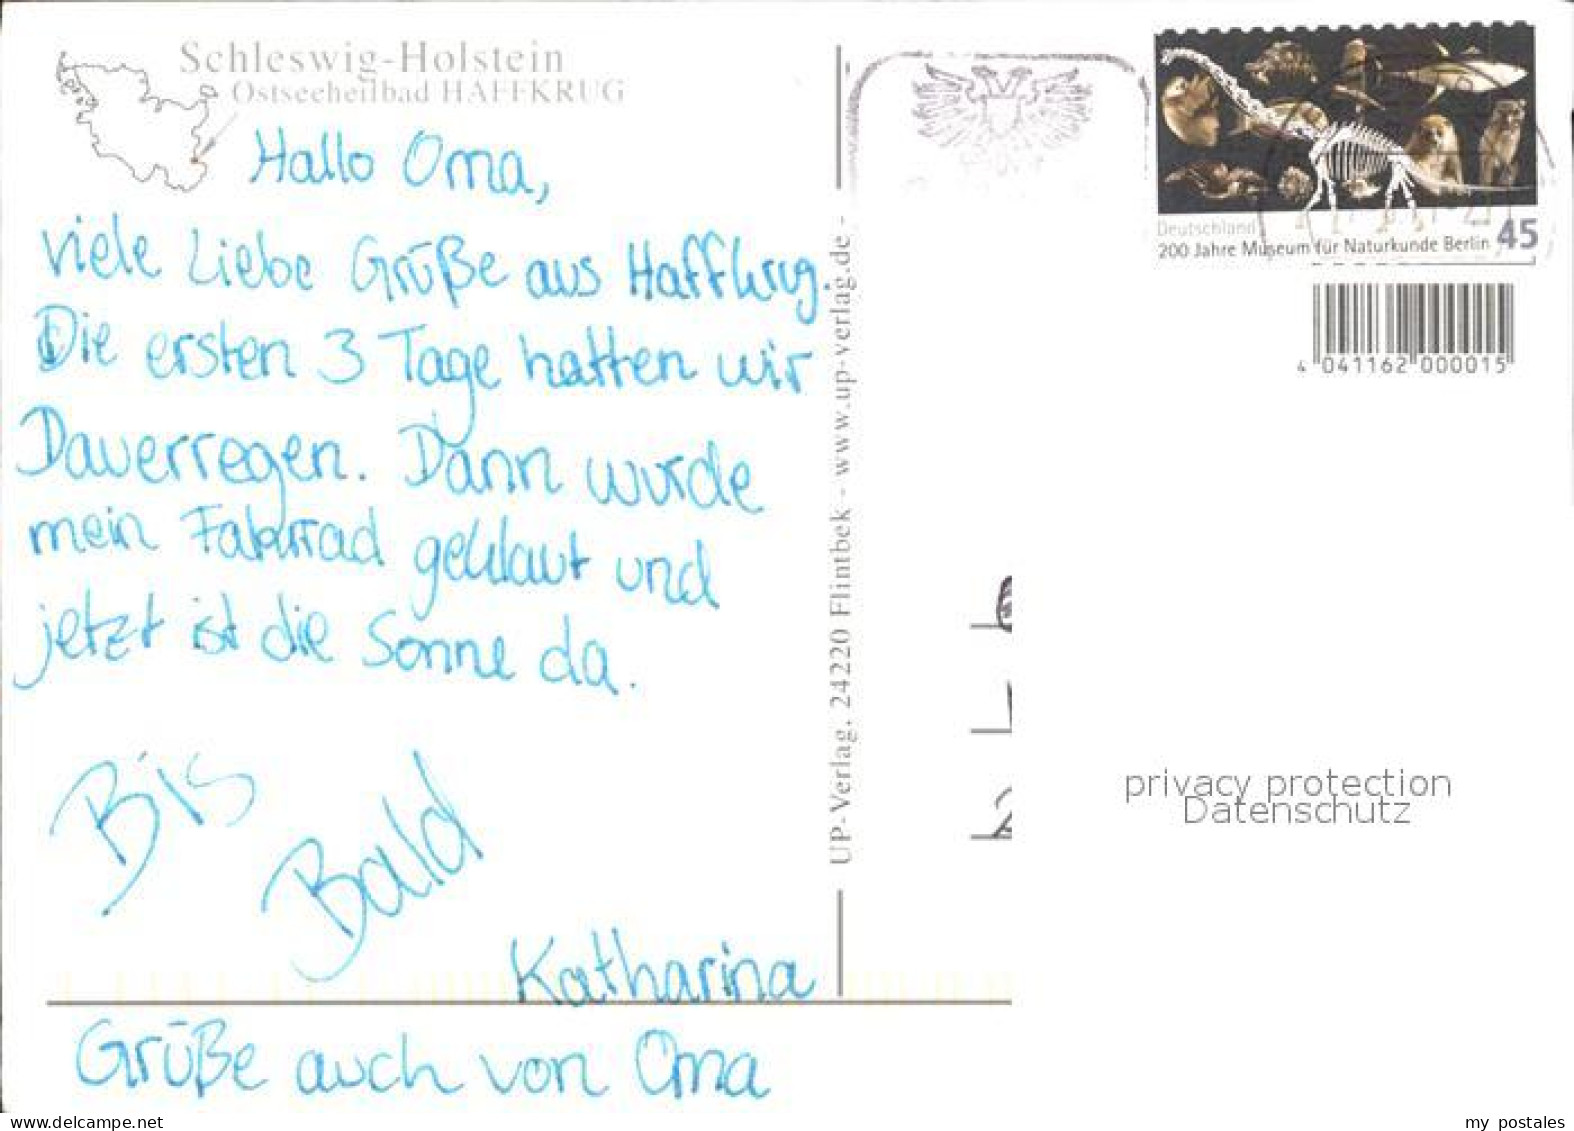 Schleswig-Holstein
Ostseeheilbad HAFFKRUG
Hallo Oma,
viele Liebe Grüße aus Haffkrug.
Die ersten 3 Tage hatten wir
Dauerregen. Dann wurde
mein Fahrrad geklaut und
jetzt ist die Sonne da.
Bis
Bald
Katharina
Grüße auch von Oma
UP-Verlag, 24220 Flintbek - www.up-verlag.de -
Deutschland
200 Jahre Museum für Naturkunde Berlin 45
4 041162 000015
privacy protection
Datenschutz
my postales